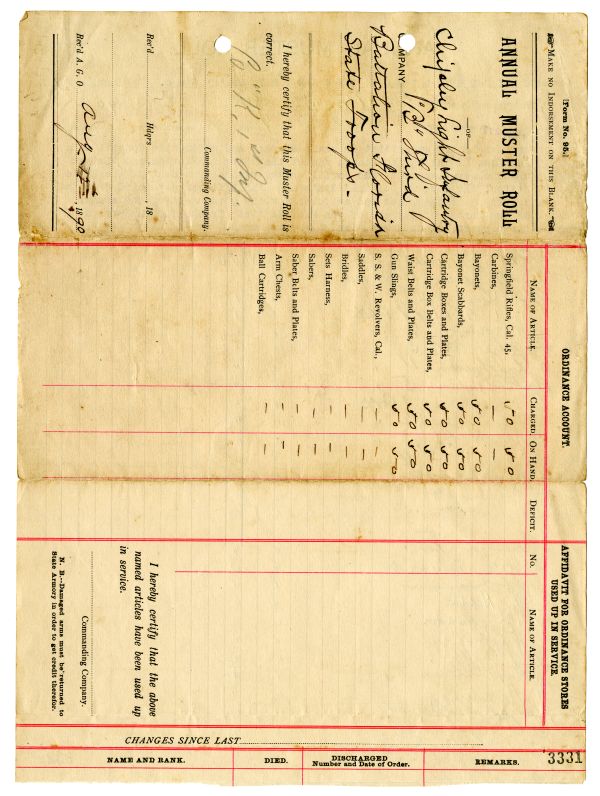 (Form No. 95.)
MAKE NO INDORSEMENT ON THIS BLANK.
ANNUAL MUSTER ROLL
—OF—
Chipley Light Infantry
COMPANY "B" Third
Battalion Florida
State Troops -
I hereby certify that this Muster Roll is
correct.
Commanding Company.
Rec'd Hdqrs 18
Rec'd A. G. O Aug 1890
ORDINANCE ACCOUNT.
NAME OF ARTICLE. CHARGED. ON HAND. DEFICIT.
Springfield Rifles, Cal. 45, 50 50
Carbines, — —
Bayonets, 50 50
Bayonet Scabbards, 50 50
Cartridge Boxes and Plates, 50 50
Cartridge Box Belts and Plates, 50 50
Waist Belts and Plates, 50 50
Gun Slings, 50 50
S. S. & W. Revolvers, Cal., — —
Saddles, — —
Bridles, — —
Sets Harness, — —
Sabers, — —
Saber Belts and Plates, — —
Arm Chests, — —
Ball Cartridges, — —
AFFIDAVIT FOR ORDINANCE STORES
USED UP IN SERVICE.
NO. NAME OF ARTICLE.
I hereby certify that the above
named articles have been used up
in service.
Commanding Company.
N. B.—Damaged arms must be returned to
State Armory in order to get credit therefor.
CHANGES SINCE LAST
NAME AND RANK. DIED. DISCHARGED REMARKS.
Number and Date of Order.
3331